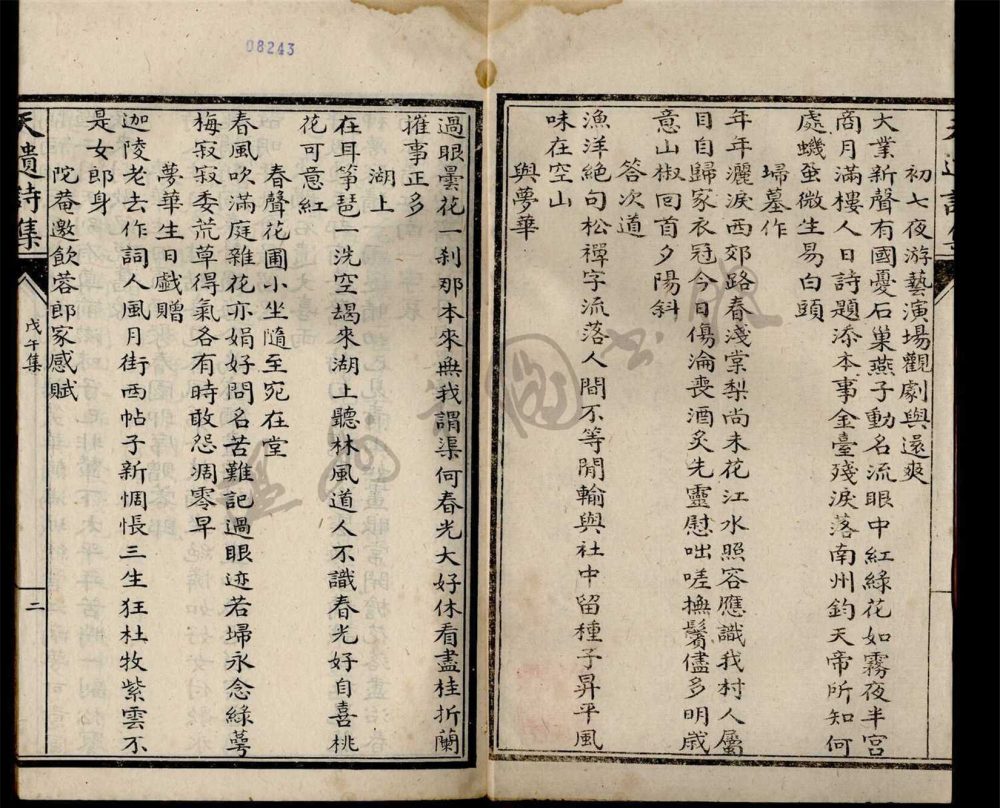 初七夜游藝演場觀劇與還爽
大業新聲有國憂石巢燕子動名流眼中紅綠花如霧夜半宮
商月滿樓人日詩題添本事金臺殘淚落南州鈞天帝所知何
處蟣蝨微生易白頭
埽墓作
年年灑淚西郊路春淺棠梨尚未花江水照容應識我村人屬
目自歸家衣冠今日傷淪喪酒炙先靈慰咄嗟撫鬢儘多明歲
意山椒回首夕陽斜
答次道
漁洋絕句松禪字流落人間不等閒輸與社中留種子昇平風
味在空山
與夢華
過眼曇花一刹那本來無我謂渠何春光大好休看盡桂折蘭
摧事正多
湖上
在耳箏琶一洗空朅來湖上聽林風道人不識春光好自喜桃
花可意紅
春聲花圃小坐隨至宛在堂
春風吹滿庭雜花亦娟好問名苦難記過眼迹若埽永念綠萼
梅寂寂委荒草得氣各有時敢怨凋零早
夢華生日戲贈
迦陵老去作詞人風月街西帖子新惆悵三生狂杜牧紫雲不
是女郎身
陀菴邀飲蓉郎家感賦
天遺詩集
戊午集
二
08243